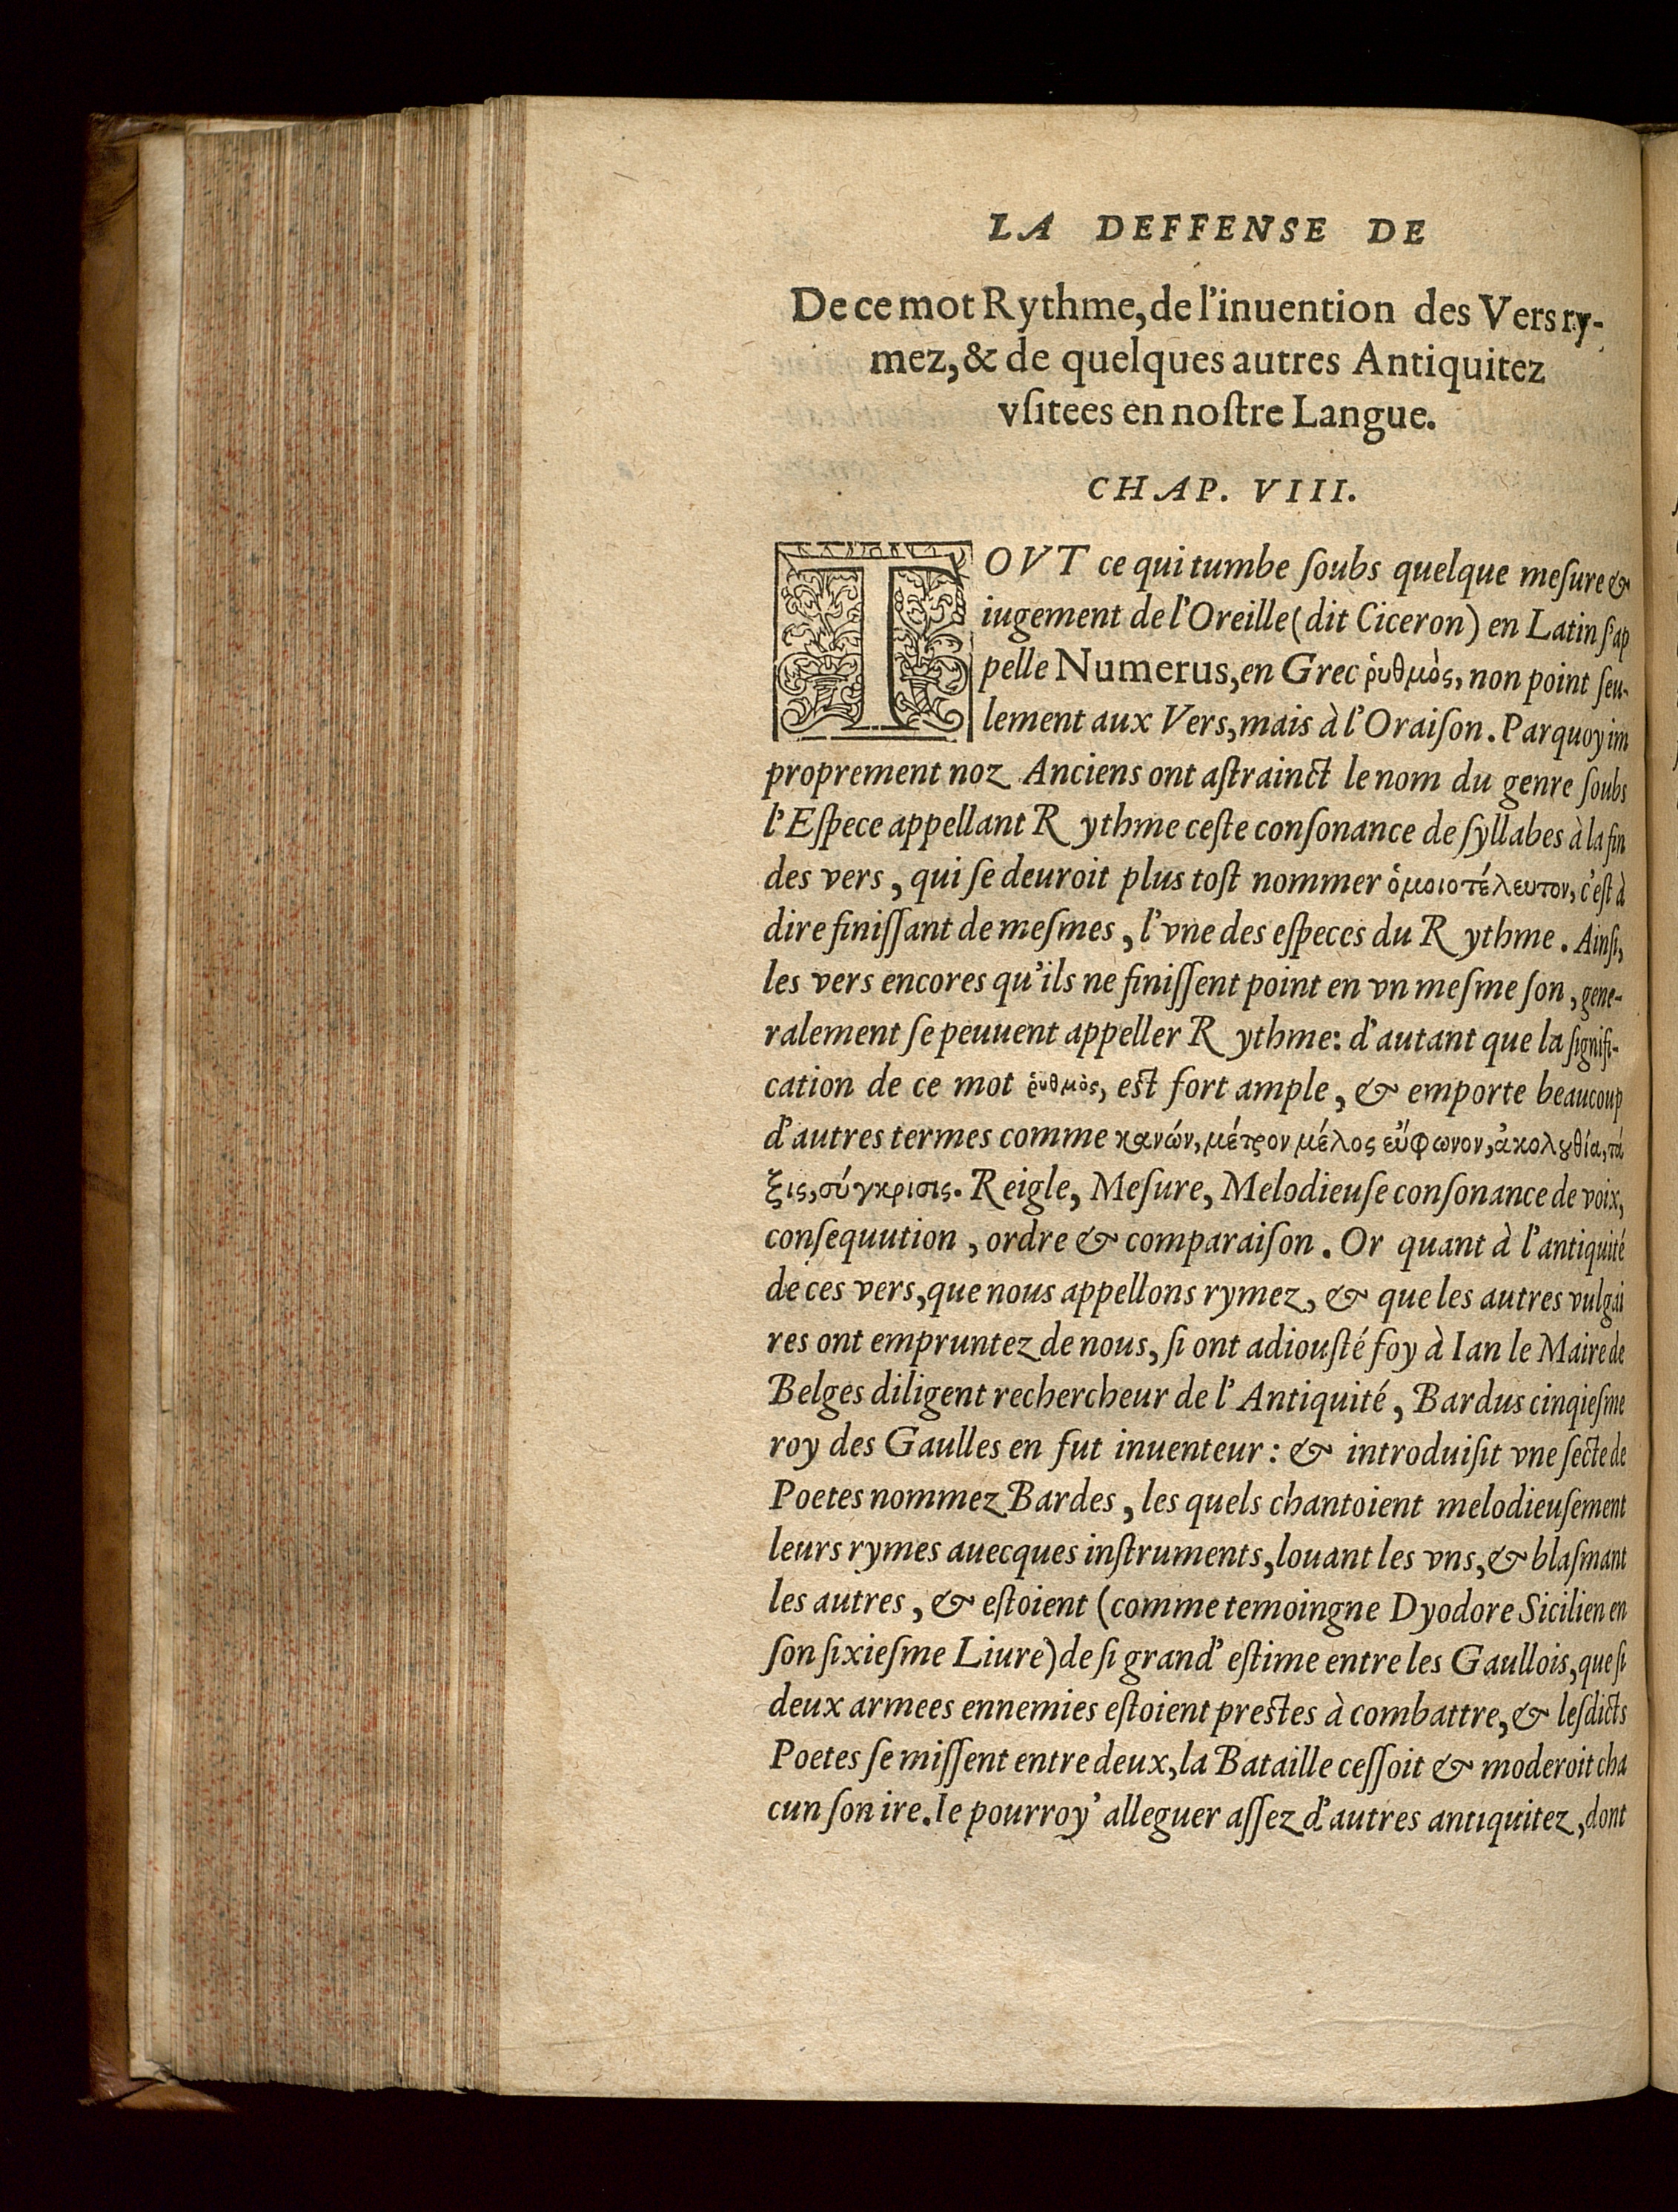 LA DEFFENSE DE
De ce mot Rythme, de l'inuention des Vers ry-
mez, & de quelques autres Antiquitez
vſitees en noſtre Langue.
CHAP. VIII.
TOVT ce qui tumbe ſoubs quelque meſure &
iugement de l'Oreille (dit Ciceron) en Latin ſ'ap
pelle Numerus, en Grec ῥυθμὸς, non point ſeu-
lement aux Vers, mais à l'Oraiſon. Parquoy im
proprement noz Anciens ont aſtrainct le nom du genre ſoubs
l'Eſpece appellant Rythme ceſte conſonance de ſyllabes à la fin
des vers, qui ſe deuroit plus toſt nommer ὁμοιοτέλευτον, c'eſt à
dire finiſſant de meſmes, l'vne des eſpeces du Rythme. Ainſi,
les vers encores qu'ils ne finiſſent point en vn meſme ſon, gene-
ralement ſe peuuent appeller Rythme: d'autant que la ſignifi-
cation de ce mot ῥυθμὸς, eſt fort ample, & emporte beaucoup
d'autres termes comme κανών, μέτρον μέλος εὔφωνον, ἀκολȣθία, τά
ξις, σύγκρισις. Reigle, Meſure, Melodieuſe conſonance de voix,
conſequution, ordre & comparaiſon. Or quant à l'antiquité
de ces vers, que nous appellons rymez, & que les autres vulgai
res ont empruntez de nous, ſi ont adiouſté foy à Ian le Maire de
Belges diligent rechercheur de l'Antiquité, Bardus cinqieſme
roy des Gaulles en fut inuenteur: & introduiſit vne ſecte de
Poetes nommez Bardes, les quels chantoient melodieuſement
leurs rymes auecques inſtruments, louant les vns, & blaſmant
les autres, & eſtoient (comme temoingne Dyodore Sicilien en
ſon ſixieſme Liure) de ſi grand' eſtime entre les Gaullois, que ſi
deux armees ennemies eſtoient preſtes à combattre, & leſdicts
Poetes ſe miſſent entre deux, la Bataille ceſſoit & moderoit cha
cun ſon ire. Ie pourroy' alleguer aſſez d'autres antiquitez, dont